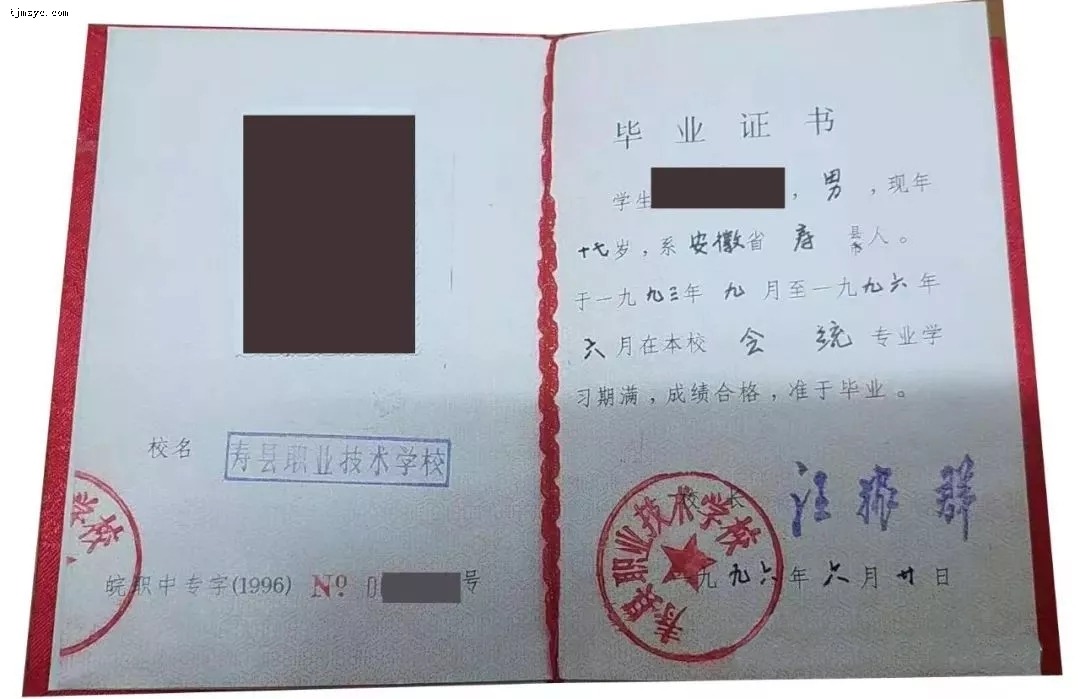 tjmsyc.com
校名 寿县职业技术学校
学校
皖职中专字(1996) No. 0 号
毕业证书
学生 ，男，现年
十七岁，系安徽省寿县市人。
于一九九三年九月至一九九六年
六月在本校会统专业学
习期满，成绩合格，准于毕业。
校长 汪振群
寿县职业技术学校
一九九六年六月廿日